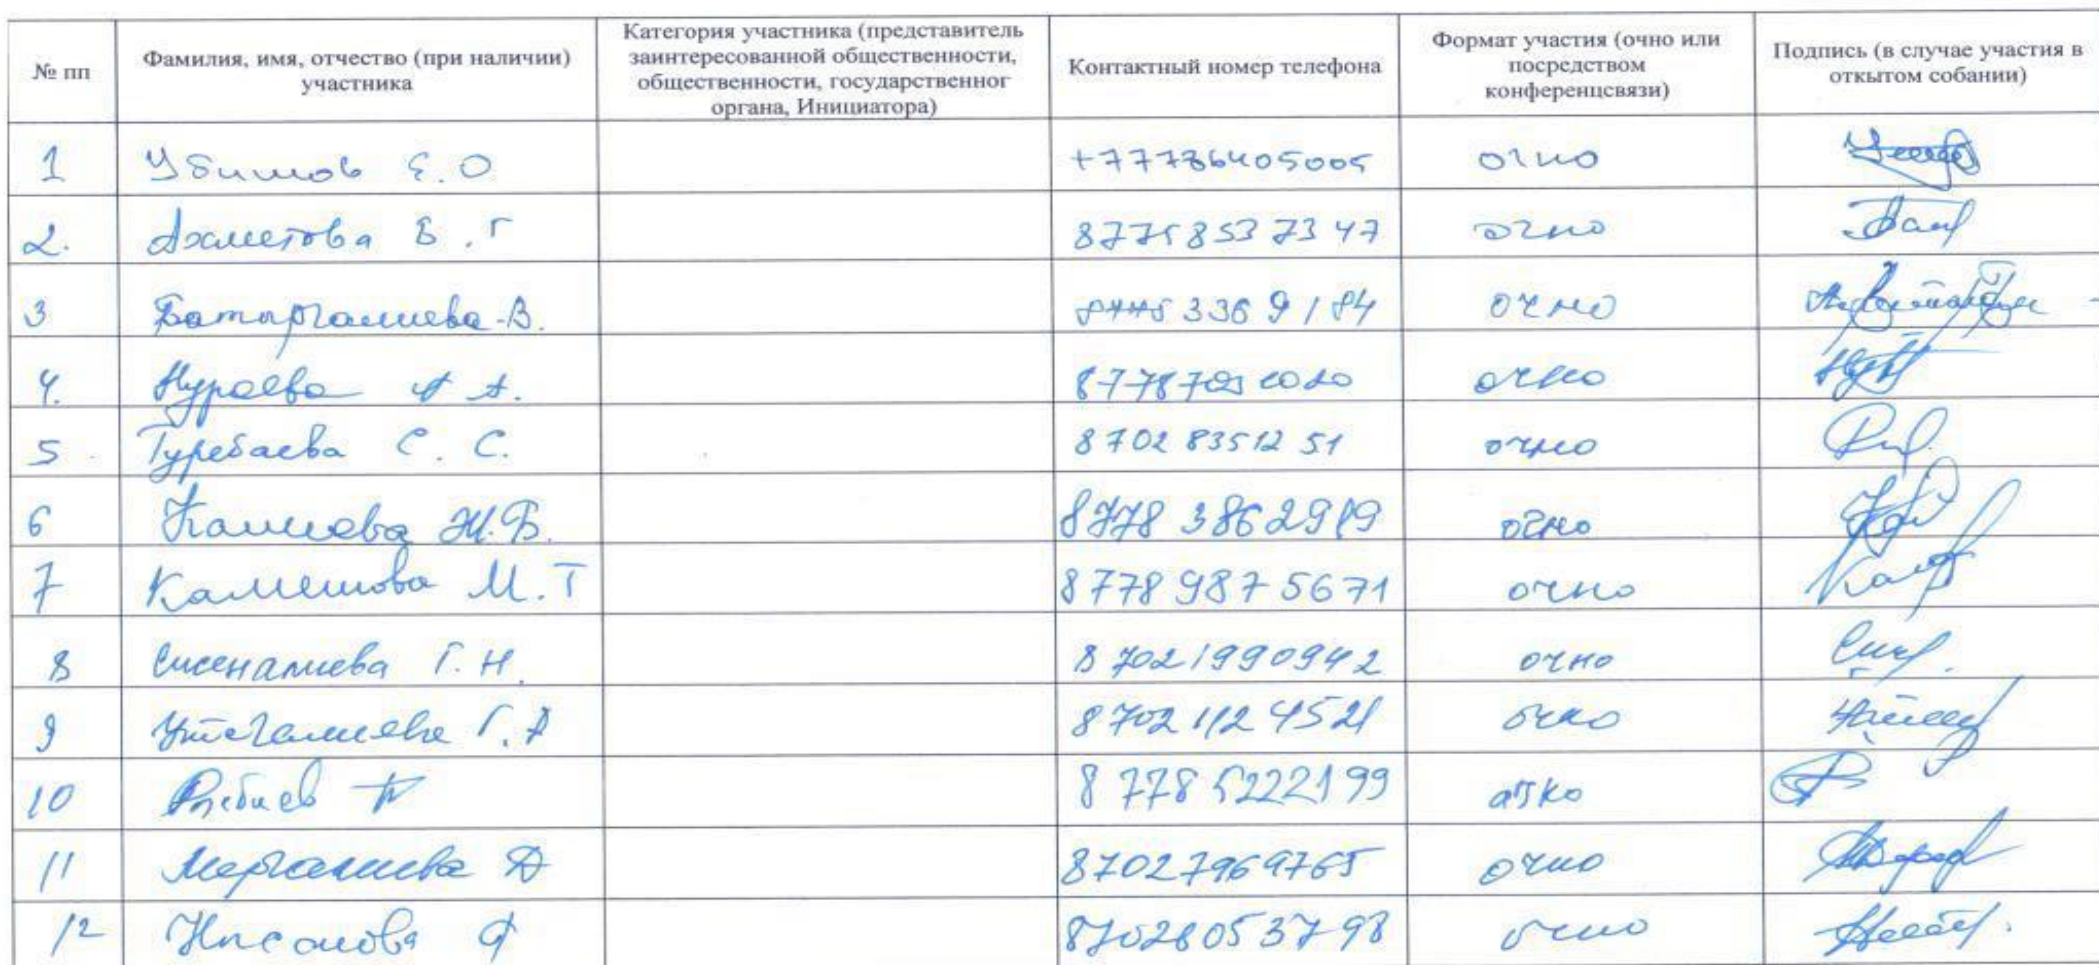 № пп
Фамилия, имя, отчество (при наличии)
участника
Категория участника (представитель
заинтересованной общественности,
общественности, государственног
органа, Инициатора)
Контактный номер телефона
Формат участия (очно или
посредством
конференцсвязи)
Подпись (в случае участия в
откытом собании)
1 Убишов Е.О очно
2. Ахметова Б.Г 8775 853 73 47 очно
3 Батыргалиева В. 8775 336 9184 очно
4. Нураева А А. очно
5 Туребаева С. С. 8 702 83512 51 очно
6 Ж.Б. 8778 3862919 очно
7 Камешова М.Т 8 778 987 5671 очно
8 Сисеналиева Г.Н. 8 7021990942 очно
9 Утегалиева Г.А 8 702 112 4521 очно
10 8 778 5222199 очно
11 Мергалиева Д 87027969765 очно
12 87026053798 очно